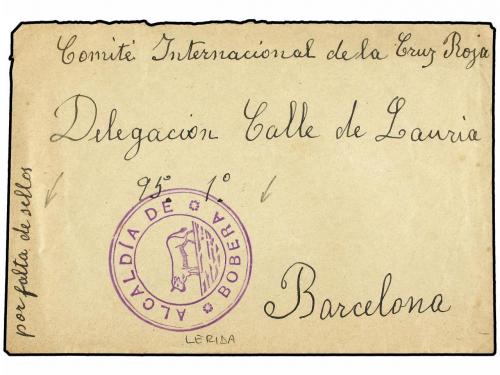 Comité Internacional de la Cruz Roja
Delegación Calle de Lauria
95º 1º
ALCALDÍA DE BOBERA
Barcelona
LERIDA
por falta de sellos